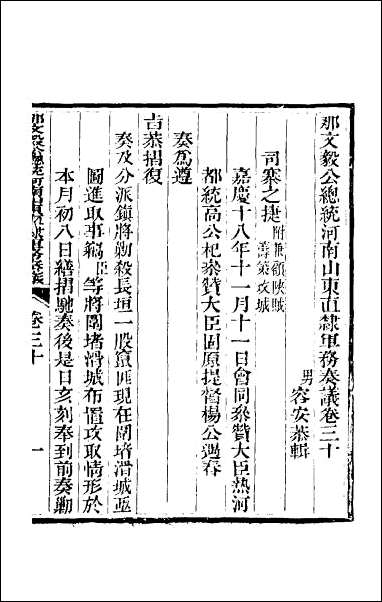 那文毅公總統河南山東直隸軍務奏議卷三十
男容安恭輯
司寨之捷附剿頓陝賊
籌策攻城
嘉慶十八年十一月十一日會同叅贊大臣熱河
都統高公杞叅贊大臣固原提督楊公遇春
奏爲遵
旨恭摺復
奏及分派鎮將勦殺長垣一股竄匪現在圍堵滑城亟
圖進取事竊臣等將圍堵滑城布置攻取情形於
本月初八日繕摺馳奏後是日亥刻奉到前奏勦
卷三十
一